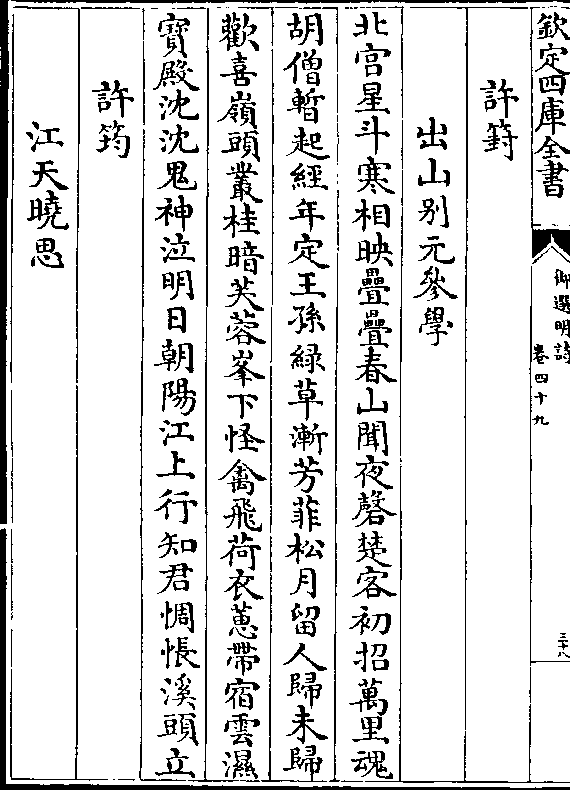 欽定四庫全書
御選明詩
卷四十九
三十八
許𥮅
出山别元參學
北宫星斗寒相映疊疊春山聞夜磬楚客初招萬里魂
胡僧暫起經年定王孫緑草漸芳菲松月留人歸未歸
歡喜嶺頭叢桂暗芙蓉峯下怪禽飛荷衣蕙帶宿雲濕
寳殿沈沈鬼神泣明日朝陽江上行知君惆悵溪頭立
許筠
江天曉思